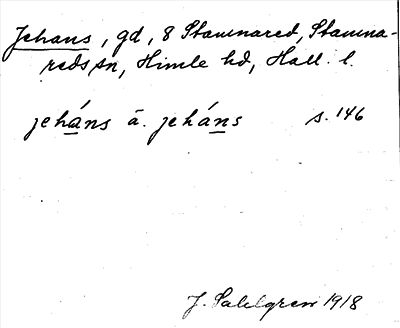 Jehans, gd, 8 Stamnared, Stamna-
reds sn, Himle hd, Hall. l.
jehans ä. jehans s. 146
J. Sahlgren 1918